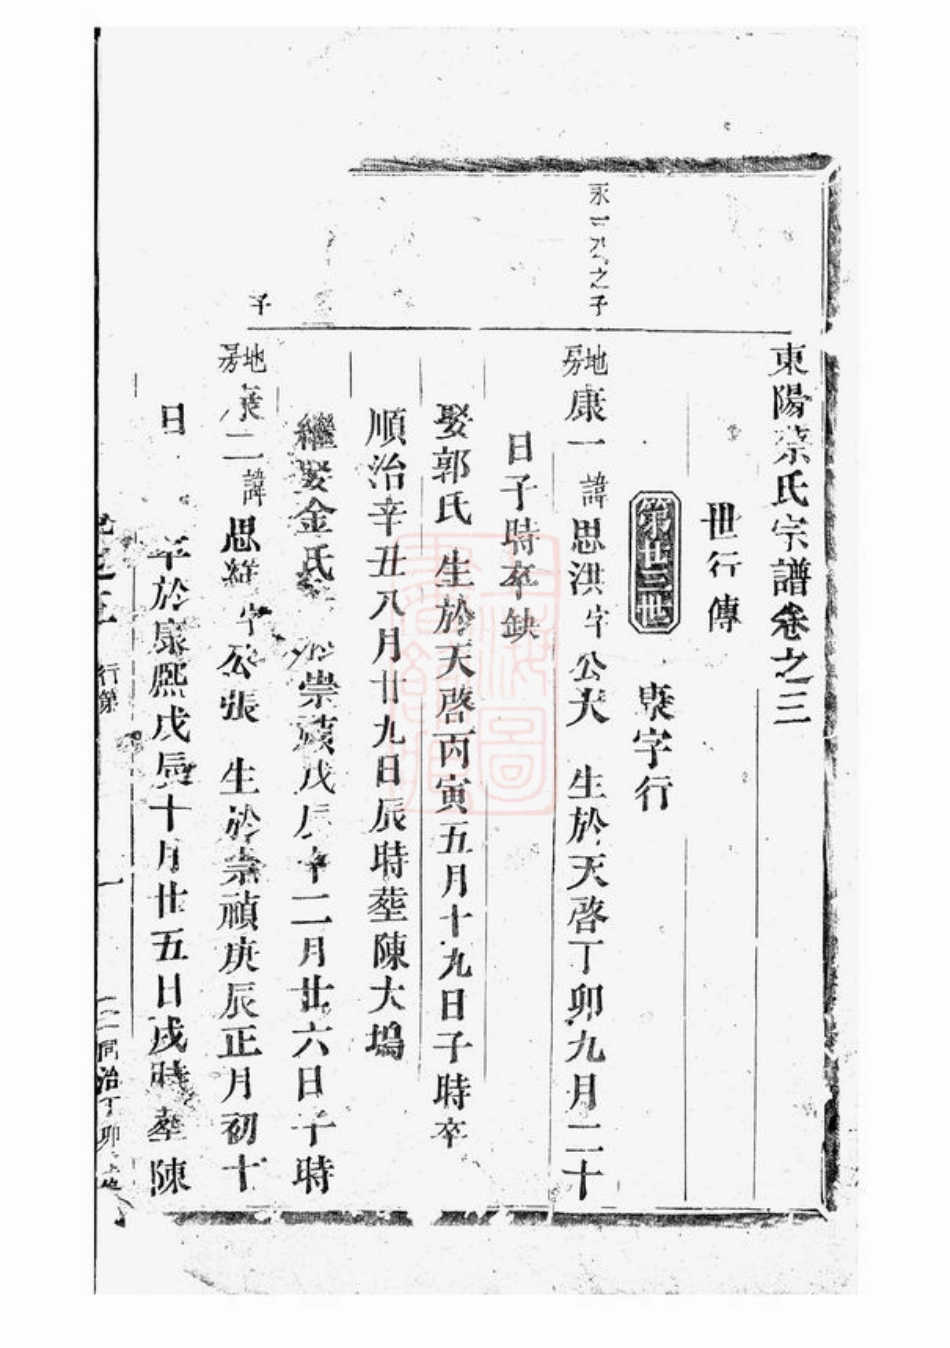 東陽蔡氏宗譜卷之三
世行傳
第廿三世 康字行
永一公之子
地房康一諱思洪字公大 生於天啓丁卯九月二十
日子時卒缺
娶郭氏 生於天啓丙寅五月十九日子時卒
順治辛丑八月廿九日辰時塟陳大塢
繼娶金氏 崇禎戊辰十二月廿六日子時
子
地房康二諱思 字公張 生於崇禎庚辰正月初十
日 卒於康熙戊辰十月廿五日戌時塟陳
行第 一 同治丁卯